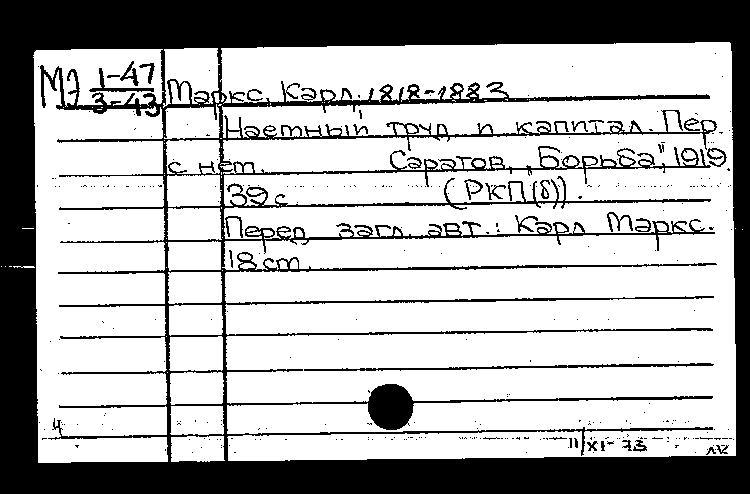 МЭ 1-47
3-43
Маркс, Карл, 1818-1883
Наемный труд и капитал. Пер.
с нем. Саратов, „Борьба”, 1919.
39 с. (РКП(б)).
Перед загл. авт.: Карл Маркс.
18 cm.
4
11/XI-73